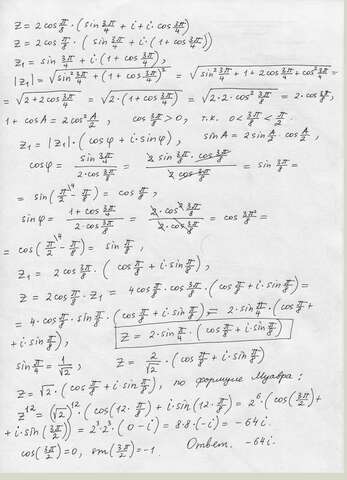 Z = 2cos π/8 · (sin 3π/4 + i + i·cos 3π/4)
Z = 2cos π/8 · ( sin 3π/4 + i·(1+cos 3π/4))
Z₁ = sin 3π/4 + i·(1+cos 3π/4),
|Z₁| = √(sin² 3π/4 + (1+cos 3π/4)²) = √(sin² 3π/4 + 1 + 2cos 3π/4 + cos² 3π/4) =
= √(2+2cos 3π/4) = √(2·(1+cos 3π/4)) = √(2·2·cos² 3π/8) = 2·cos 3π/8,
1+cosA = 2cos² A/2, cos 3π/8 > 0, т.к. 0 < 3π/8 < π/2.
Z₁ = |Z₁|·(cosφ + i·sinφ), sinA = 2sin A/2 · cos A/2,
cosφ = (sin 3π/4)/(2·cos 3π/8) = (2·sin 3π/8 · cos 3π/8)/(2·cos 3π/8) = sin 3π/8 =
= sin(π/2 \4 − π/8) = cos π/8,
sinφ = (1+cos 3π/4)/(2cos 3π/8) = (2·cos² 3π/8)/(2·cos 3π/8) = cos 3π/8 =
= cos(π/2 \4 − π/8) = sin π/8,
Z₁ = 2cos 3π/8 · (cos π/8 + i·sin π/8),
Z = 2cos π/8 · Z₁ = 4cos π/8 · cos 3π/8 · (cos π/8 + i·sin π/8) =
= 4·cos π/8 · sin π/8 · (cos π/8 + i·sin π/8) = 2·sin π/4 · (cos π/8 +
+ i·sin π/8), Z = 2·sin π/4 · (cos π/8 + i·sin π/8)
sin π/4 = 1/√2, Z = 2/√2 · (cos π/8 + i·sin π/8)
Z = √2·(cos π/8 + i·sin π/8), по формуле Муавра:
Z¹² = (√2)¹² · (cos(12·π/8) + i·sin(12·π/8)) = 2⁶·(cos(3π/2) +
+ i·sin(3π/2)) = 2³·2³·(0−i) = 8·8·(−i) = −64i.
cos(3π/2) = 0, sin(3π/2) = −1. Ответ. −64i.